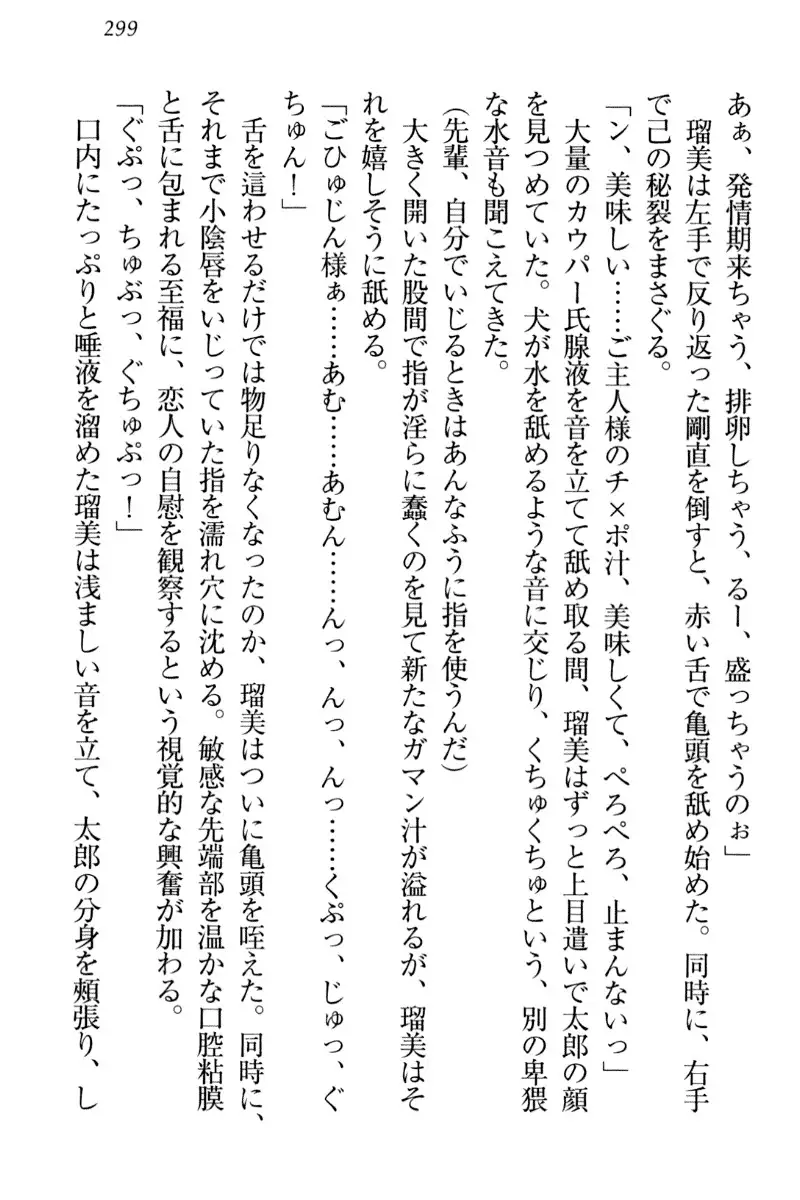 299
あぁ、発情期来ちゃう、排卵しちゃう、るー、盛っちゃうのぉ」
瑠美は左手で反り返った剛直を倒すと、赤い舌で亀頭を舐め始めた。同時に、右手
で己の秘裂をまさぐる。
「ン、美味しい……ご主人様のチ×ポ汁、美味しくて、ぺろぺろ、止まんないっ」
大量のカウパー氏腺液を音を立てて舐め取る間、瑠美はずっと上目遣いで太郎の顔
を見つめていた。犬が水を舐めるような音に交じり、くちゅくちゅという、別の卑猥
な水音も聞こえてきた。
(先輩、自分でいじるときはあんなふうに指を使うんだ)
大きく開いた股間で指が淫らに蠢くのを見て新たなガマン汁が溢れるが、瑠美はそ
れを嬉しそうに舐める。
「ごひゅじん様ぁ……あむ……あむん……んっ、んっ、んっ……くぷっ、じゅっ、ぐ
ちゅん！」
舌を這わせるだけでは物足りなくなったのか、瑠美はついに亀頭を咥えた。同時に、
それまで小陰唇をいじっていた指を濡れ穴に沈める。敏感な先端部を温かな口腔粘膜
と舌に包まれる至福に、恋人の自慰を観察するという視覚的な興奮が加わる。
「ぐぷっ、ちゅぶっ、ぐちゅぷっ！」
口内にたっぷりと唾液を溜めた瑠美は浅ましい音を立て、太郎の分身を頬張り、し